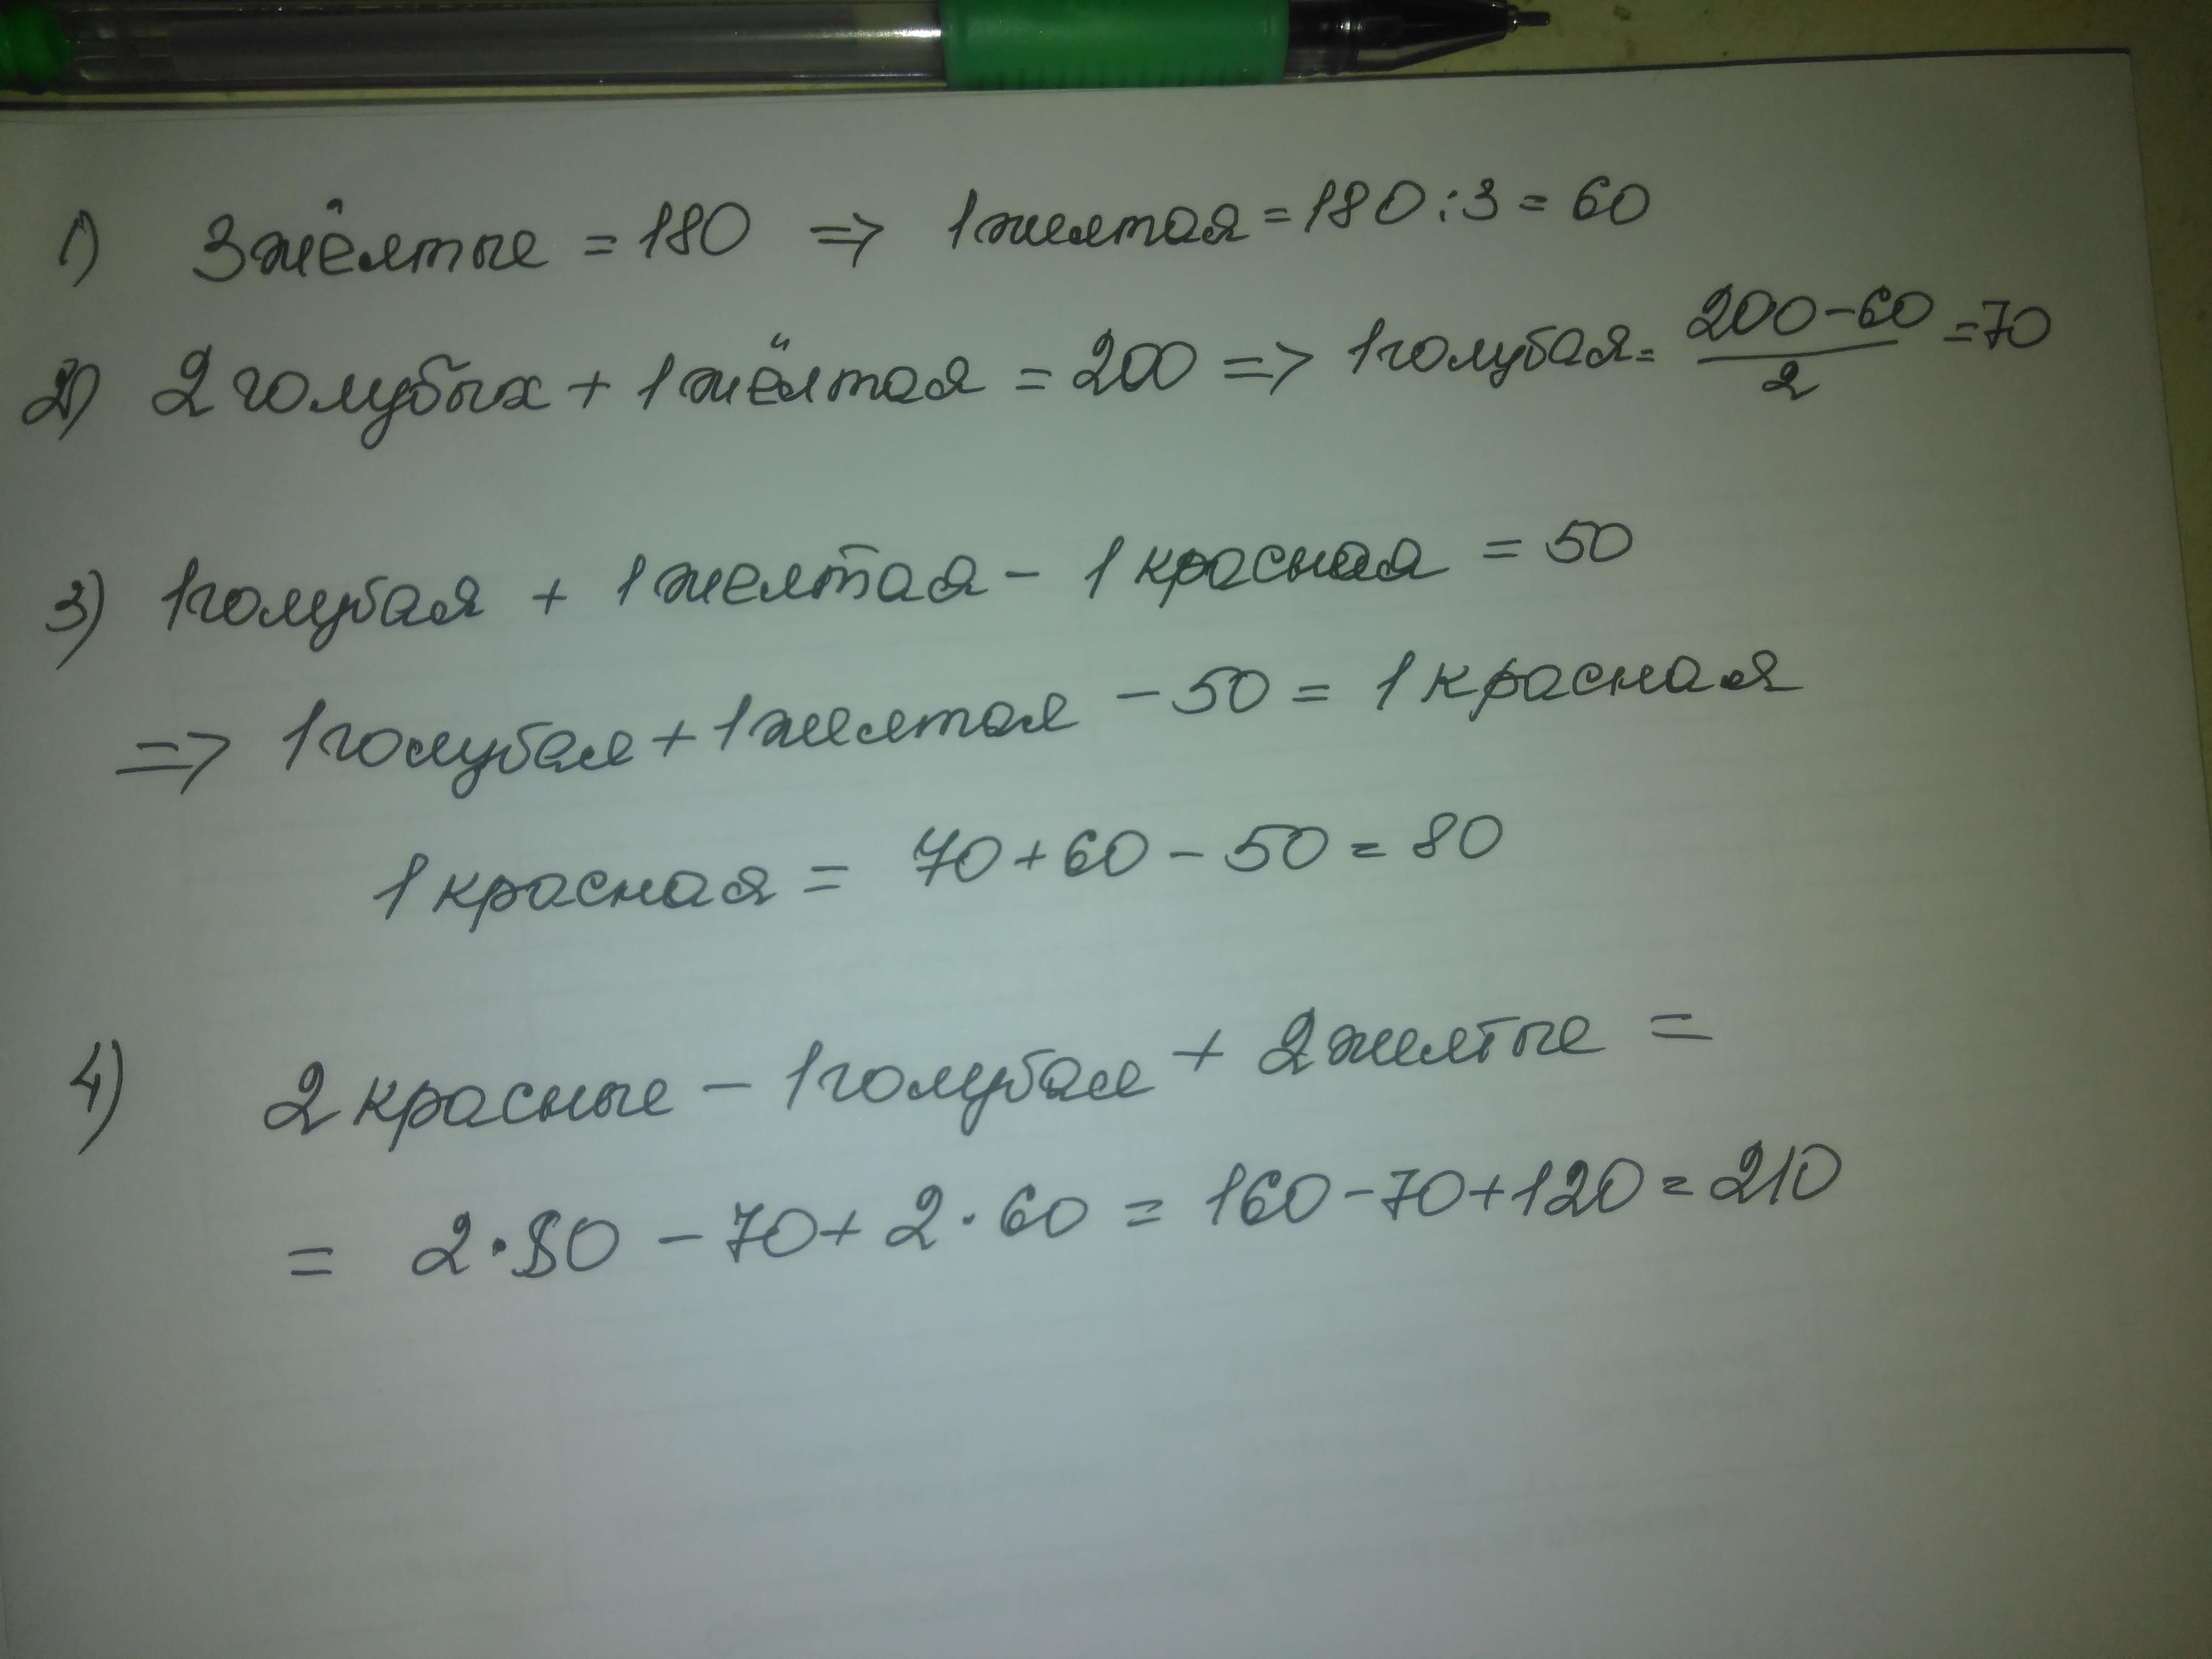 1) 3 жёлтые = 180 => 1 желтая = 180 : 3 = 60
2) 2 голубых + 1 жёлтая = 200 => 1 голубая = (200-60)/2 = 70
3) 1 голубая + 1 желтая - 1 красная = 50
=> 1 голубая + 1 желтая - 50 = 1 красная
1 красная = 70 + 60 - 50 = 80
4) 2 красные - 1 голубая + 2 желтые =
= 2 · 80 - 70 + 2 · 60 = 160 - 70 + 120 = 210